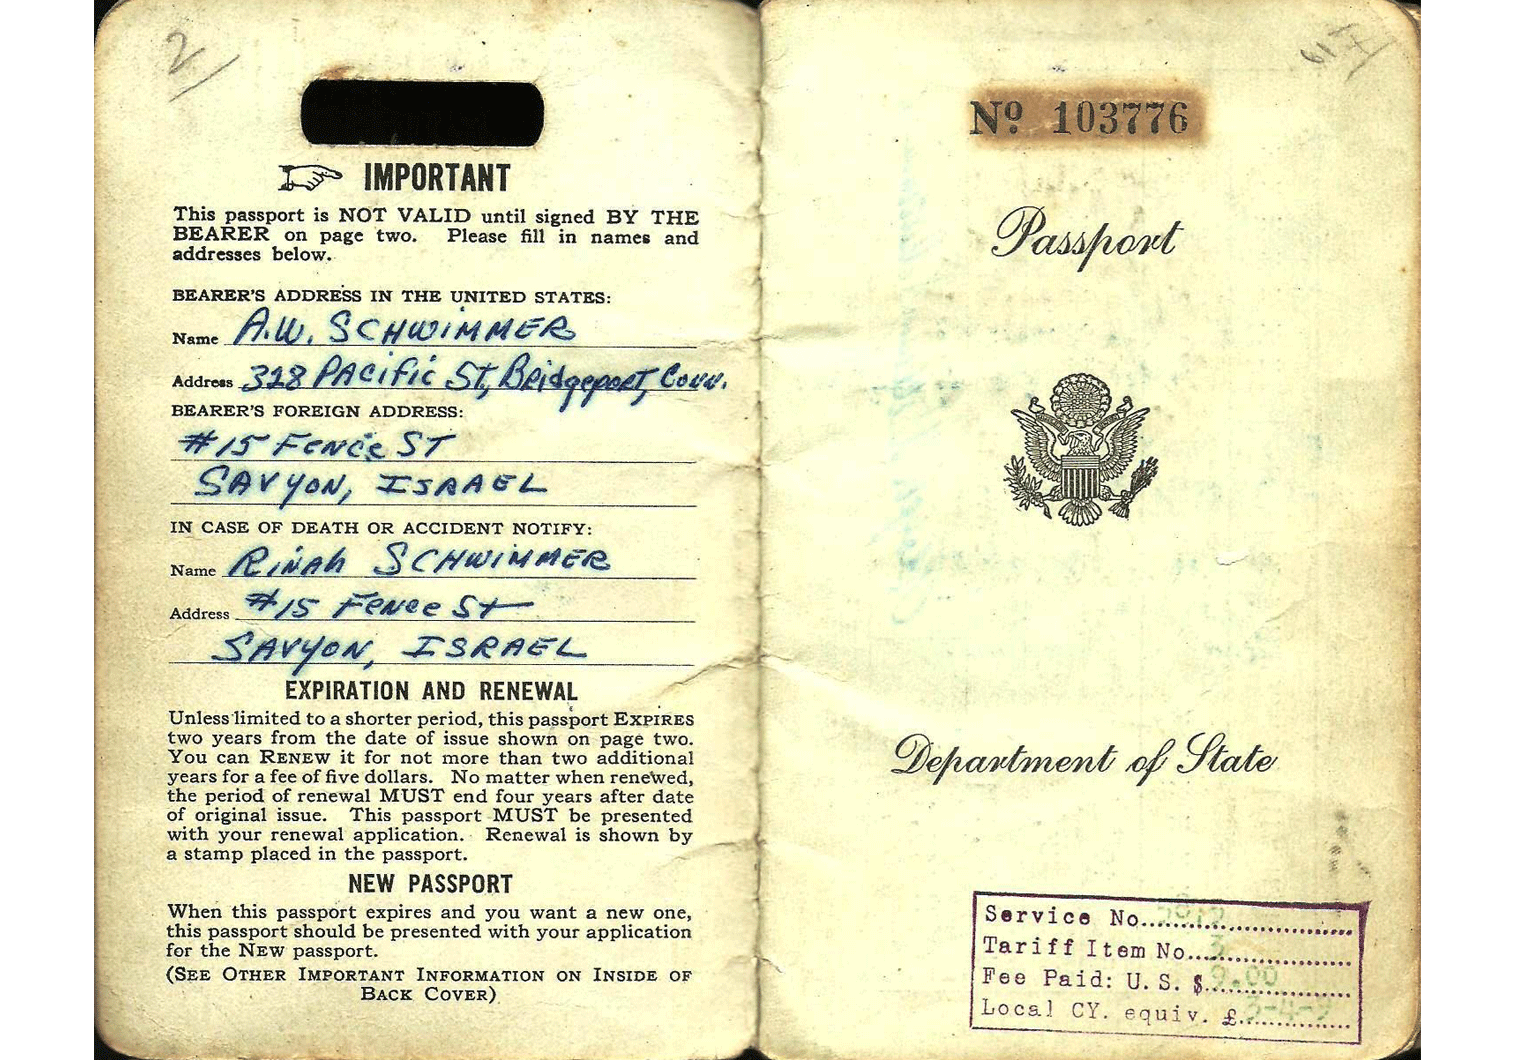 2/
IMPORTANT
This passport is NOT VALID until signed BY THE
BEARER on page two. Please fill in names and
addresses below.
BEARER'S ADDRESS IN THE UNITED STATES:
Name A.W. SCHWIMMER
Address 328 PACIFIC ST, BRIDGEPORT, CONN.
BEARER'S FOREIGN ADDRESS:
#15 FENCE ST
SAVYON, ISRAEL
IN CASE OF DEATH OR ACCIDENT NOTIFY:
Name RINAH SCHWIMMER
Address #15 FENCE ST
SAVYON, ISRAEL
EXPIRATION AND RENEWAL
Unless limited to a shorter period, this passport EXPIRES
two years from the date of issue shown on page two.
You can RENEW it for not more than two additional
years for a fee of five dollars. No matter when renewed,
the period of renewal MUST end four years after date
of original issue. This passport MUST be presented
with your renewal application. Renewal is shown by
a stamp placed in the passport.
NEW PASSPORT
When this passport expires and you want a new one,
this passport should be presented with your application
for the NEW passport.
(SEE OTHER IMPORTANT INFORMATION ON INSIDE OF
BACK COVER)
Nº 103776
Passport
Department of State
Service No.
Tariff Item No. 3
Fee Paid: U.S. $ 9.00
Local CY. equiv. £ 3-4-